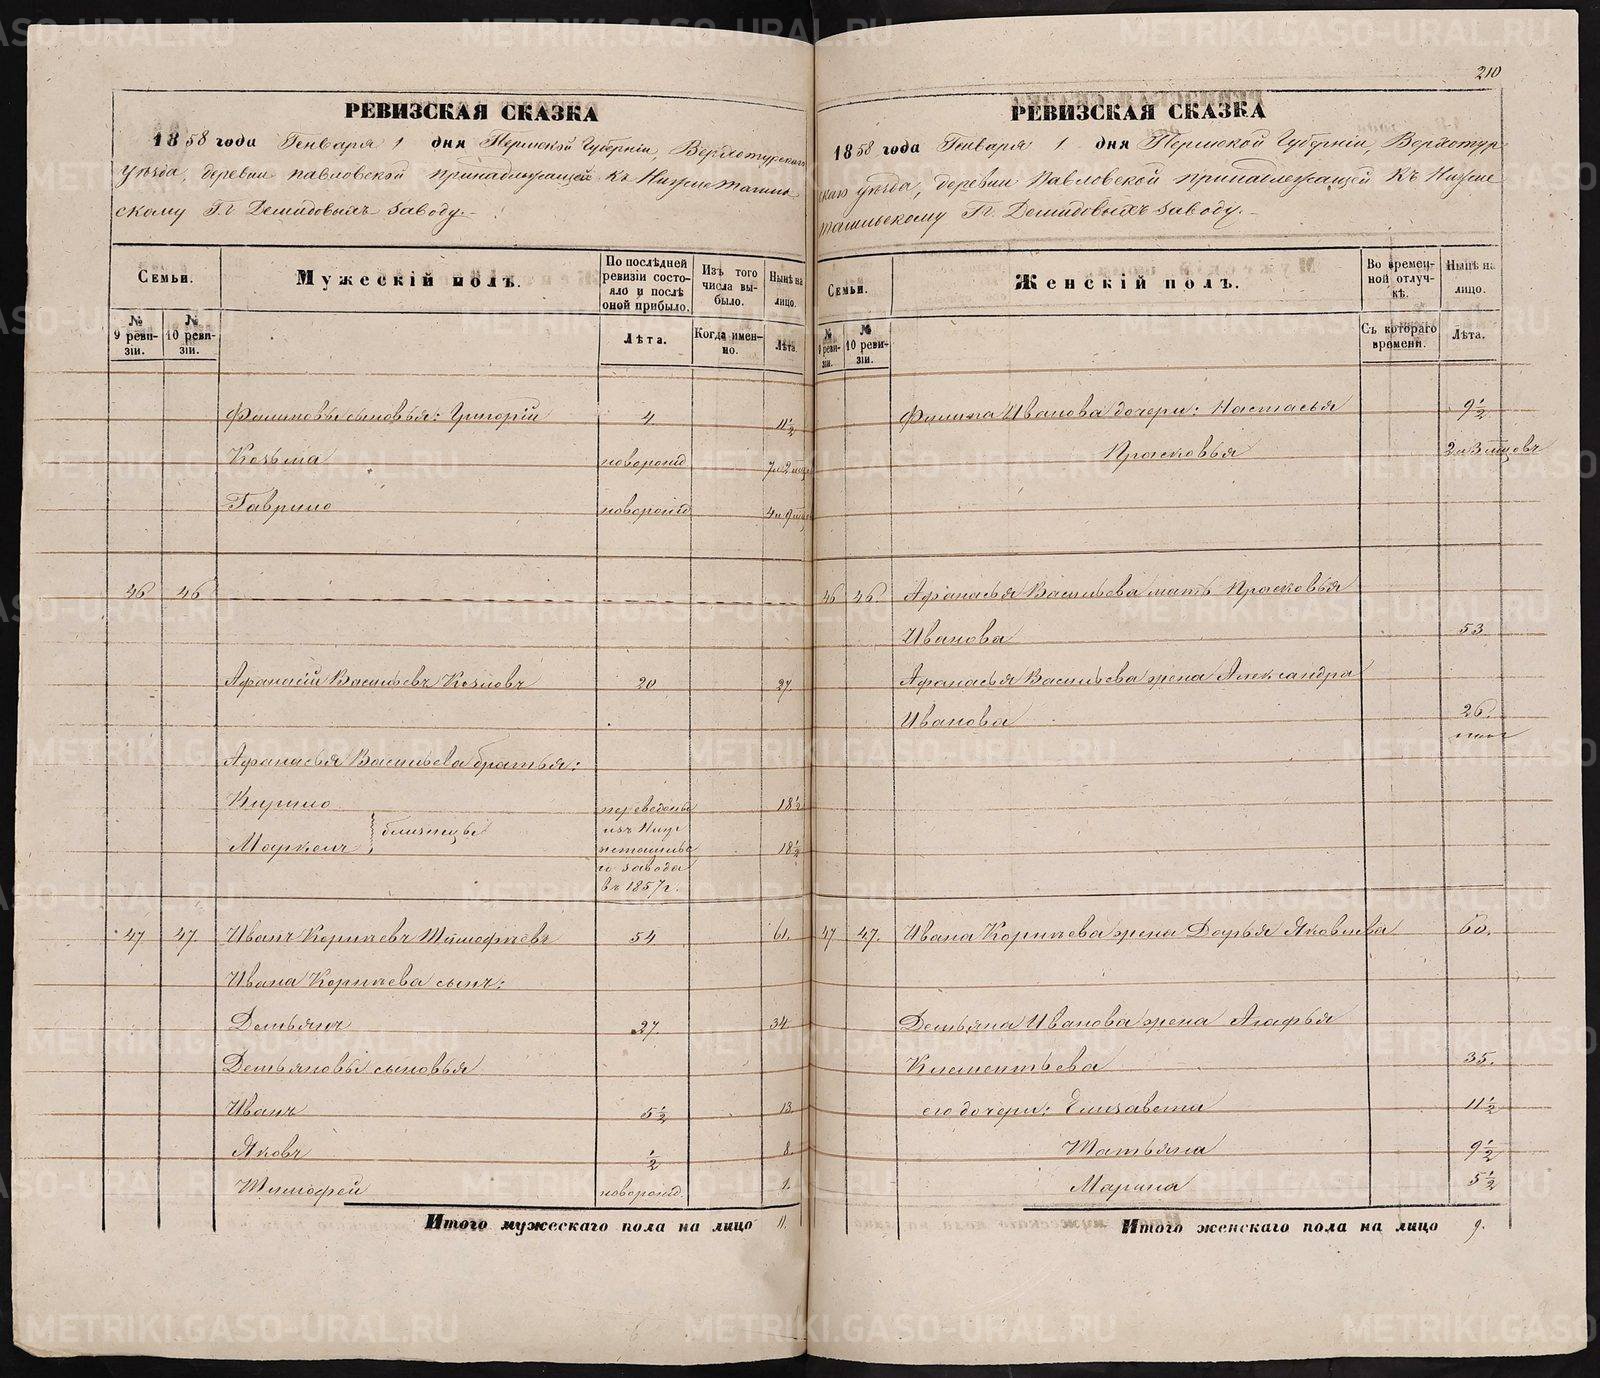 210
РЕВИЗСКАЯ СКАЗКА
1858 года Генваря 1 дня Пермской Губернии, Верхотурскаго
уѣзда, деревни Павловской принадлежащей къ Нижнетагиль
скому Гг. Демидовыхъ заводу.
Семьи.
Мужескій полъ.
По послѣдней ревизіи состояло и послѣ оной прибыло.
Изъ того числа выбыло.
Нынѣ на лицо.
№ 9 ревизіи.
№ 10 ревизіи.
Лѣта.
Когда именно.
Лѣта.
Фомиковы сыновья: Григорій 4. 11½
Козьма новорожд 7 и 2 мца
Гаврило новорожд 4 и 9 мцо
46 46
Афанасій Васильевъ Козловъ 20 27.
Афанасья Васильева братья:
Кирило 18½
Маркелъ близнецы 18½
переведены
изъ Ниж
нетагильс
го завода
въ 1857 г.
47. 47. Иванъ Корнѣевъ Тимофѣевъ 54 61.
Ивана Корнѣева сынъ:
Демьянъ 27. 34.
Демьяновы сыновья
Иванъ 5½ 13
Яковъ ½ 8.
Тимофей новорожд. 1.
Итого мужескаго пола на лицо 11.
РЕВИЗСКАЯ СКАЗКА
1858 года Генваря 1 дня Пермской Губерніи, Верхотур
скаго уѣзда, деревни Павловской принадлежащей къ Нижне
тагильскому Гг. Демидовыхъ заводу.
Семьи.
Женскій полъ.
Во временной отлучкѣ.
Нынѣ на лицо.
№ 9 ревизіи.
№ 10 ревизіи.
Съ котораго времени.
Лѣта.
Иванова дочери: Настасья 9½
Прасковья 2 и 3 мцовъ
46 46. Афанасья Васильева мать Прасковья
Иванова 53
Афанасья Васильева жена Александра
Иванова 26.
47 47. Ивана Корнѣева жена Дарья Яковлева 60.
Демьяна Иванова жена Агафья
Клементьева 35.
его дочери: Елизавета 11½
Татьяна 9½
Марина 5½
Итого женскаго пола на лицо 9.
METRIKI.GASO-URAL.RU